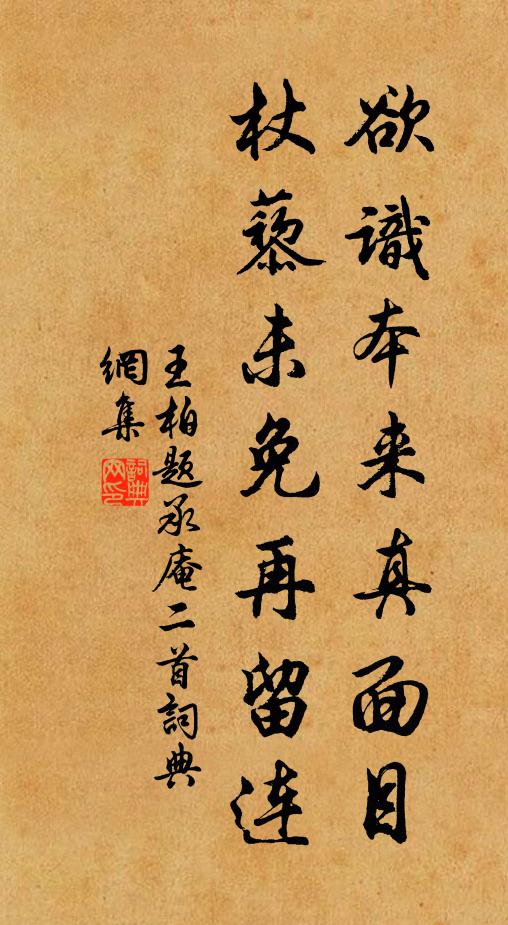 欲識本来真面目
杖藜未免再留连
王柏题承庵二首詞典
網集
詞典
网印